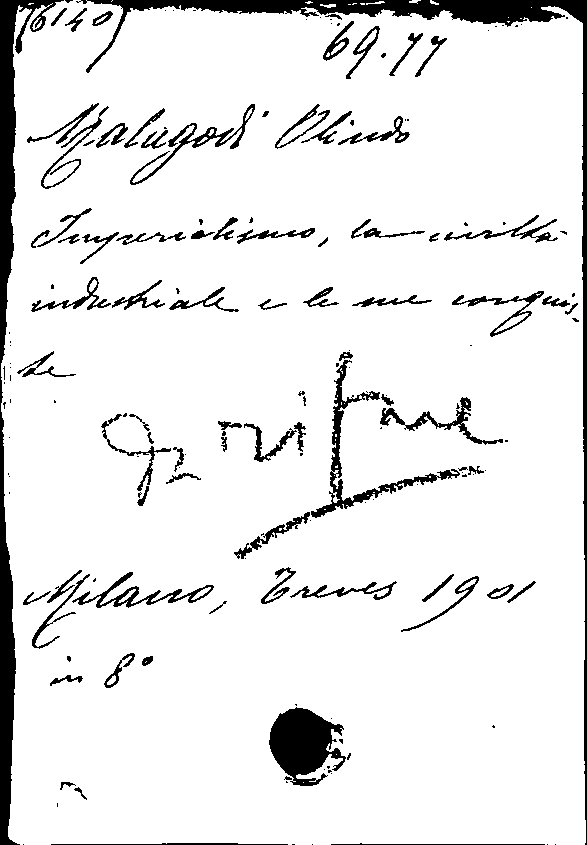 (6140)
69.77
Malagodi Olindo
Imperialismo, la civiltà
industriale e le sue conquis-
te
Milano, Treves 1901
in 8°